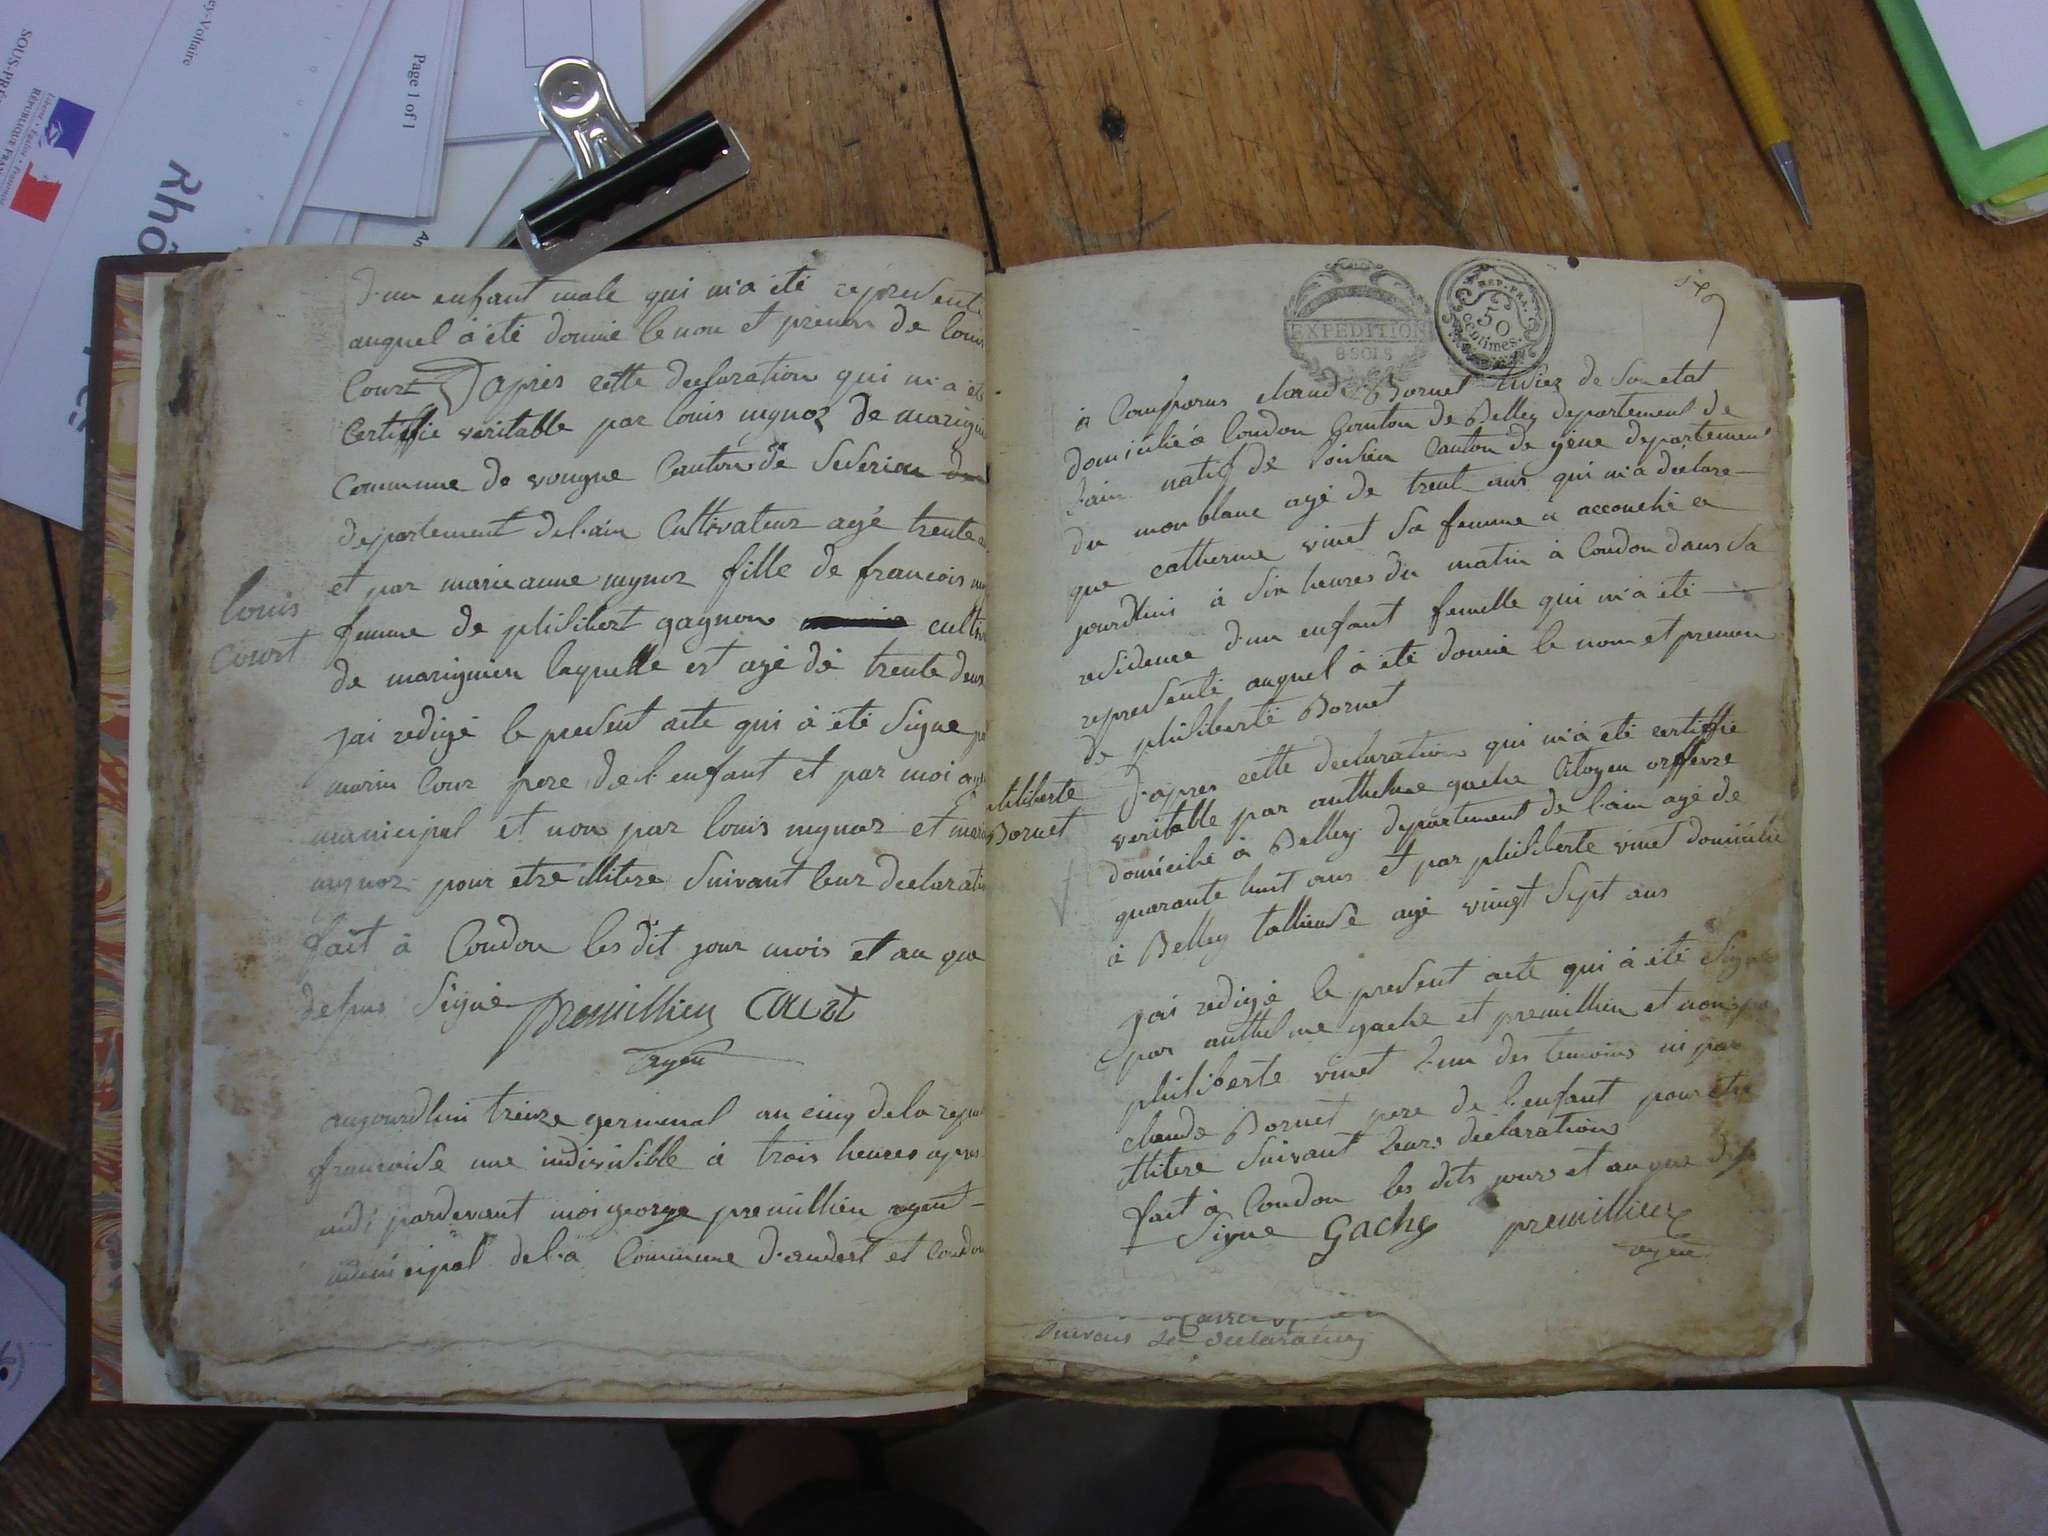 ey-Voltaire
SOUS-PRÉ
Liberté • Égalité • Fraternité
RÉPUBLIQUE FRAN
Page 1 of 1
Rhô
d'un enfant male qui m'a été represent
auquel à été donné le nom et prenom de louis
Court d'après cette declaration qui m'a été
Certiffie veritable par louis mynoz de marignie
Commune de vongne Canton de Seserieu
departement de l'ain Cultivateur agé trente
et par marie anne mynoz fille de francois
femme de philibert gagnon cultiv
louis
Court
de marignieu laquelle est agé de trente deux
J'ai redigé le present acte qui à été Signe
marin Cour pere de l'enfant et par moi
municipal et non par louis mynoz et marie
mynoz pour etre illitere Suivant leur declarati
fait à Coudon les dit jour mois et an que
defsus Signé premillieu COURT
agent
aujourdhui treize germinal an cinq de la repub
francoise une indivisible à trois heures apres
midi pardevant moi george premillieu agent
municipal de la Commune d'andert et Coudon
EXPEDITION
8 SOLS
REP. FRA.
50
centimes.
à Comparus claude Bornet tisier de Son etat
domicilié à Coudon Canton de Belley departement de
l'ain natif de loisieu Canton de yene departement
du mon blanc agé de trent ans qui m'a déclare
que catherine vinet Sa femme à accouché ce
jourdhui à Six heures du matin à Coudon dans Sa
residence d'un enfant femelle qui m'a été
representé auquel à été donné le nom et prenom
de philiberte Bornet
philiberte
Bornet
d'apres cette declaration qui m'a été certiffie
veritable par anthelme gache Citoyen orffevre
domicilié à Belley departement de l'ain agé de
quarante huit ans et par philiberte vinet domicilie
à Belley tallieuse agé vingt Sept ans
J'ai redigé le present acte qui à été Signe
par anthelme gache et premillieu et non pa
philiberte vinet l'un des temoins ni par
claude Bornet pere de l'enfant pour etre
illitere Suivant leurs declarations
fait à Coudon les dits jours et an que
Signe Gache premillieu
agent
Suivans